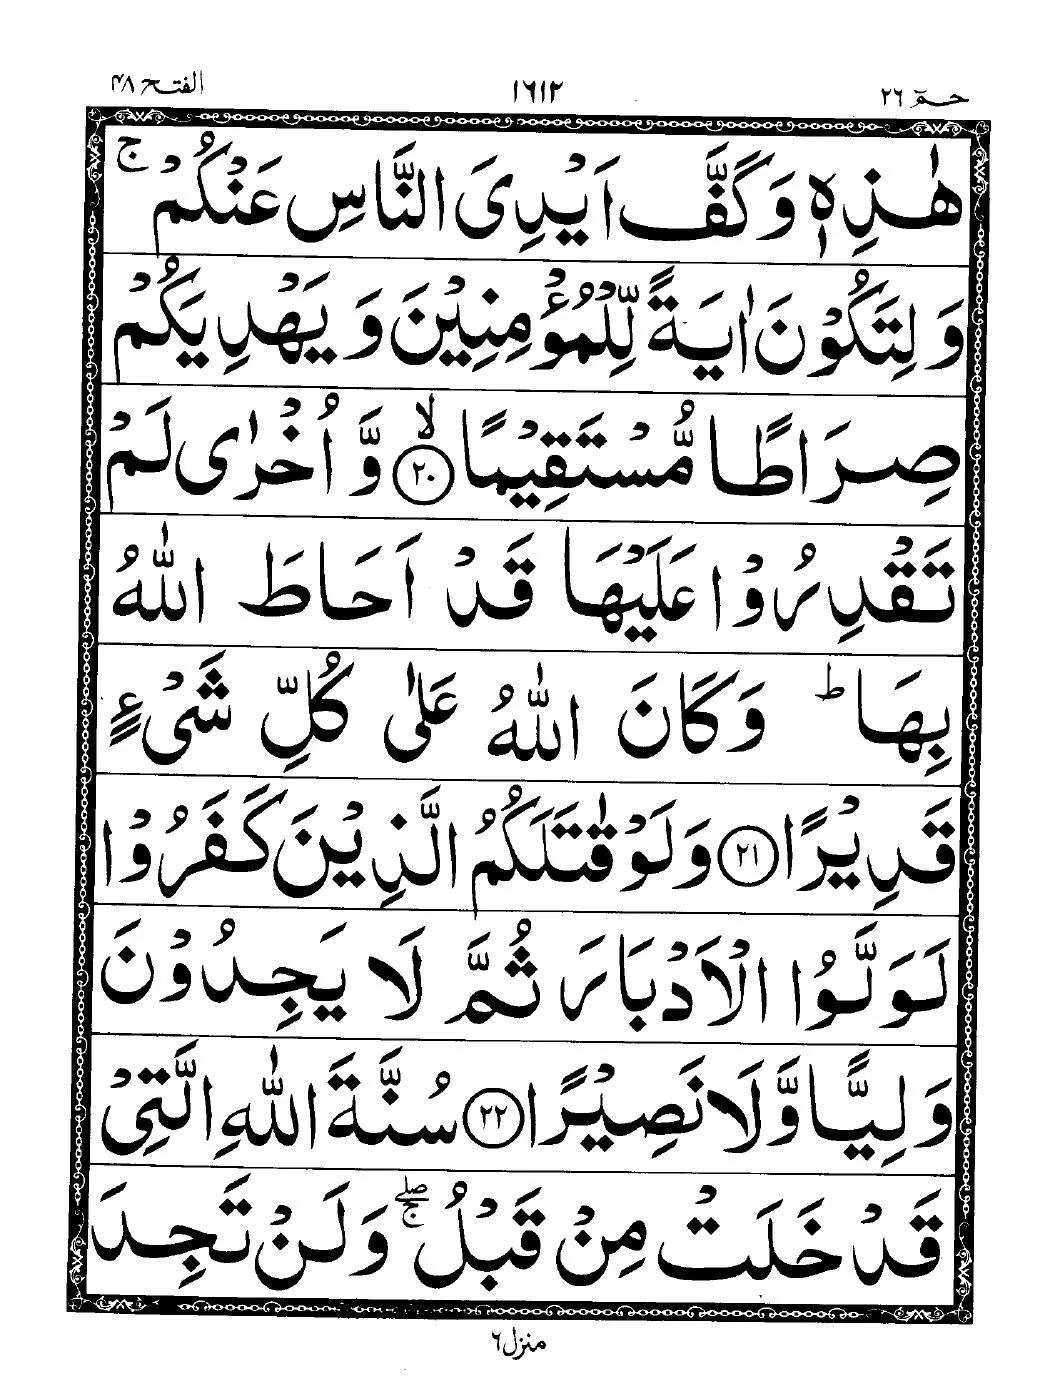 الفتح ٤٨
١٦١٢
حٰمٓ ٢٦
هٰذِهٖ وَكَفَّ اَيْدِىَ النَّاسِ عَنْكُمْ ۚ
وَلِتَكُوْنَ اٰيَةً لِّلْمُؤْمِنِيْنَ وَيَهْدِيَكُمْ
صِرَاطًا مُّسْتَقِيْمًا ۙ﴿۲۰﴾ وَّاُخْرٰى لَمْ
تَقْدِرُوْا عَلَيْهَا قَدْ اَحَاطَ اللّٰهُ
بِهَا ؕ وَكَانَ اللّٰهُ عَلٰى كُلِّ شَىْءٍ
قَدِيْرًا ﴿۲۱﴾ وَلَوْ قٰتَلَكُمُ الَّذِيْنَ كَفَرُوْا
لَوَلَّوُا الْاَدْبَارَ ثُمَّ لَا يَجِدُوْنَ
وَلِيًّا وَّلَا نَصِيْرًا ﴿۲۲﴾ سُنَّةَ اللّٰهِ الَّتِىْ
قَدْ خَلَتْ مِنْ قَبْلُ ۖۚ وَلَنْ تَجِدَ
منزل ٦